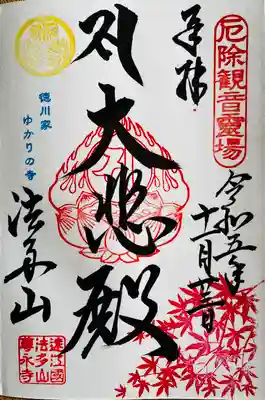 厄除観音靈場
奉拝
令和五年
十一月
大悲殿
徳川家
ゆかりの寺
法多山
遠江國
法多山
尊永寺